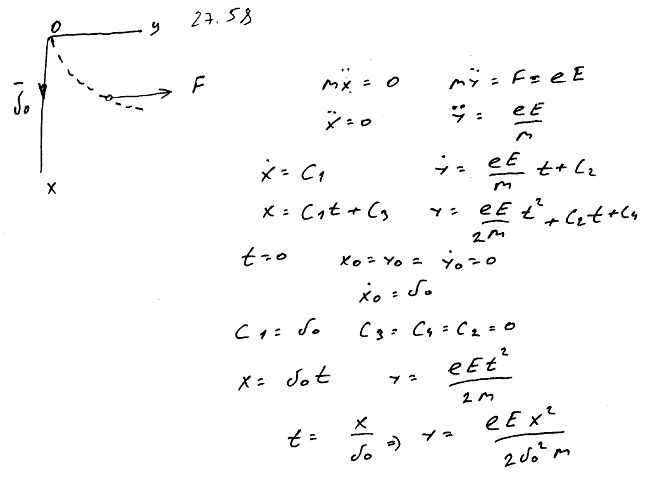 O y 27.58
F
v̄₀
x
mẍ = 0 mÿ = F = eE
ẍ = 0 ÿ = eE/m
ẋ = C₁ ẏ = eE/m t + C₂
x = C₁t + C₃ y = eE/2m t² + C₂t + C₄
t = 0 x₀ = y₀ = ẏ₀ = 0
ẋ₀ = v₀
C₁ = v₀ C₃ = C₄ = C₂ = 0
x = v₀t y = eEt²/2m
t = x/v₀ ⇒ y = eEx²/2v₀²m